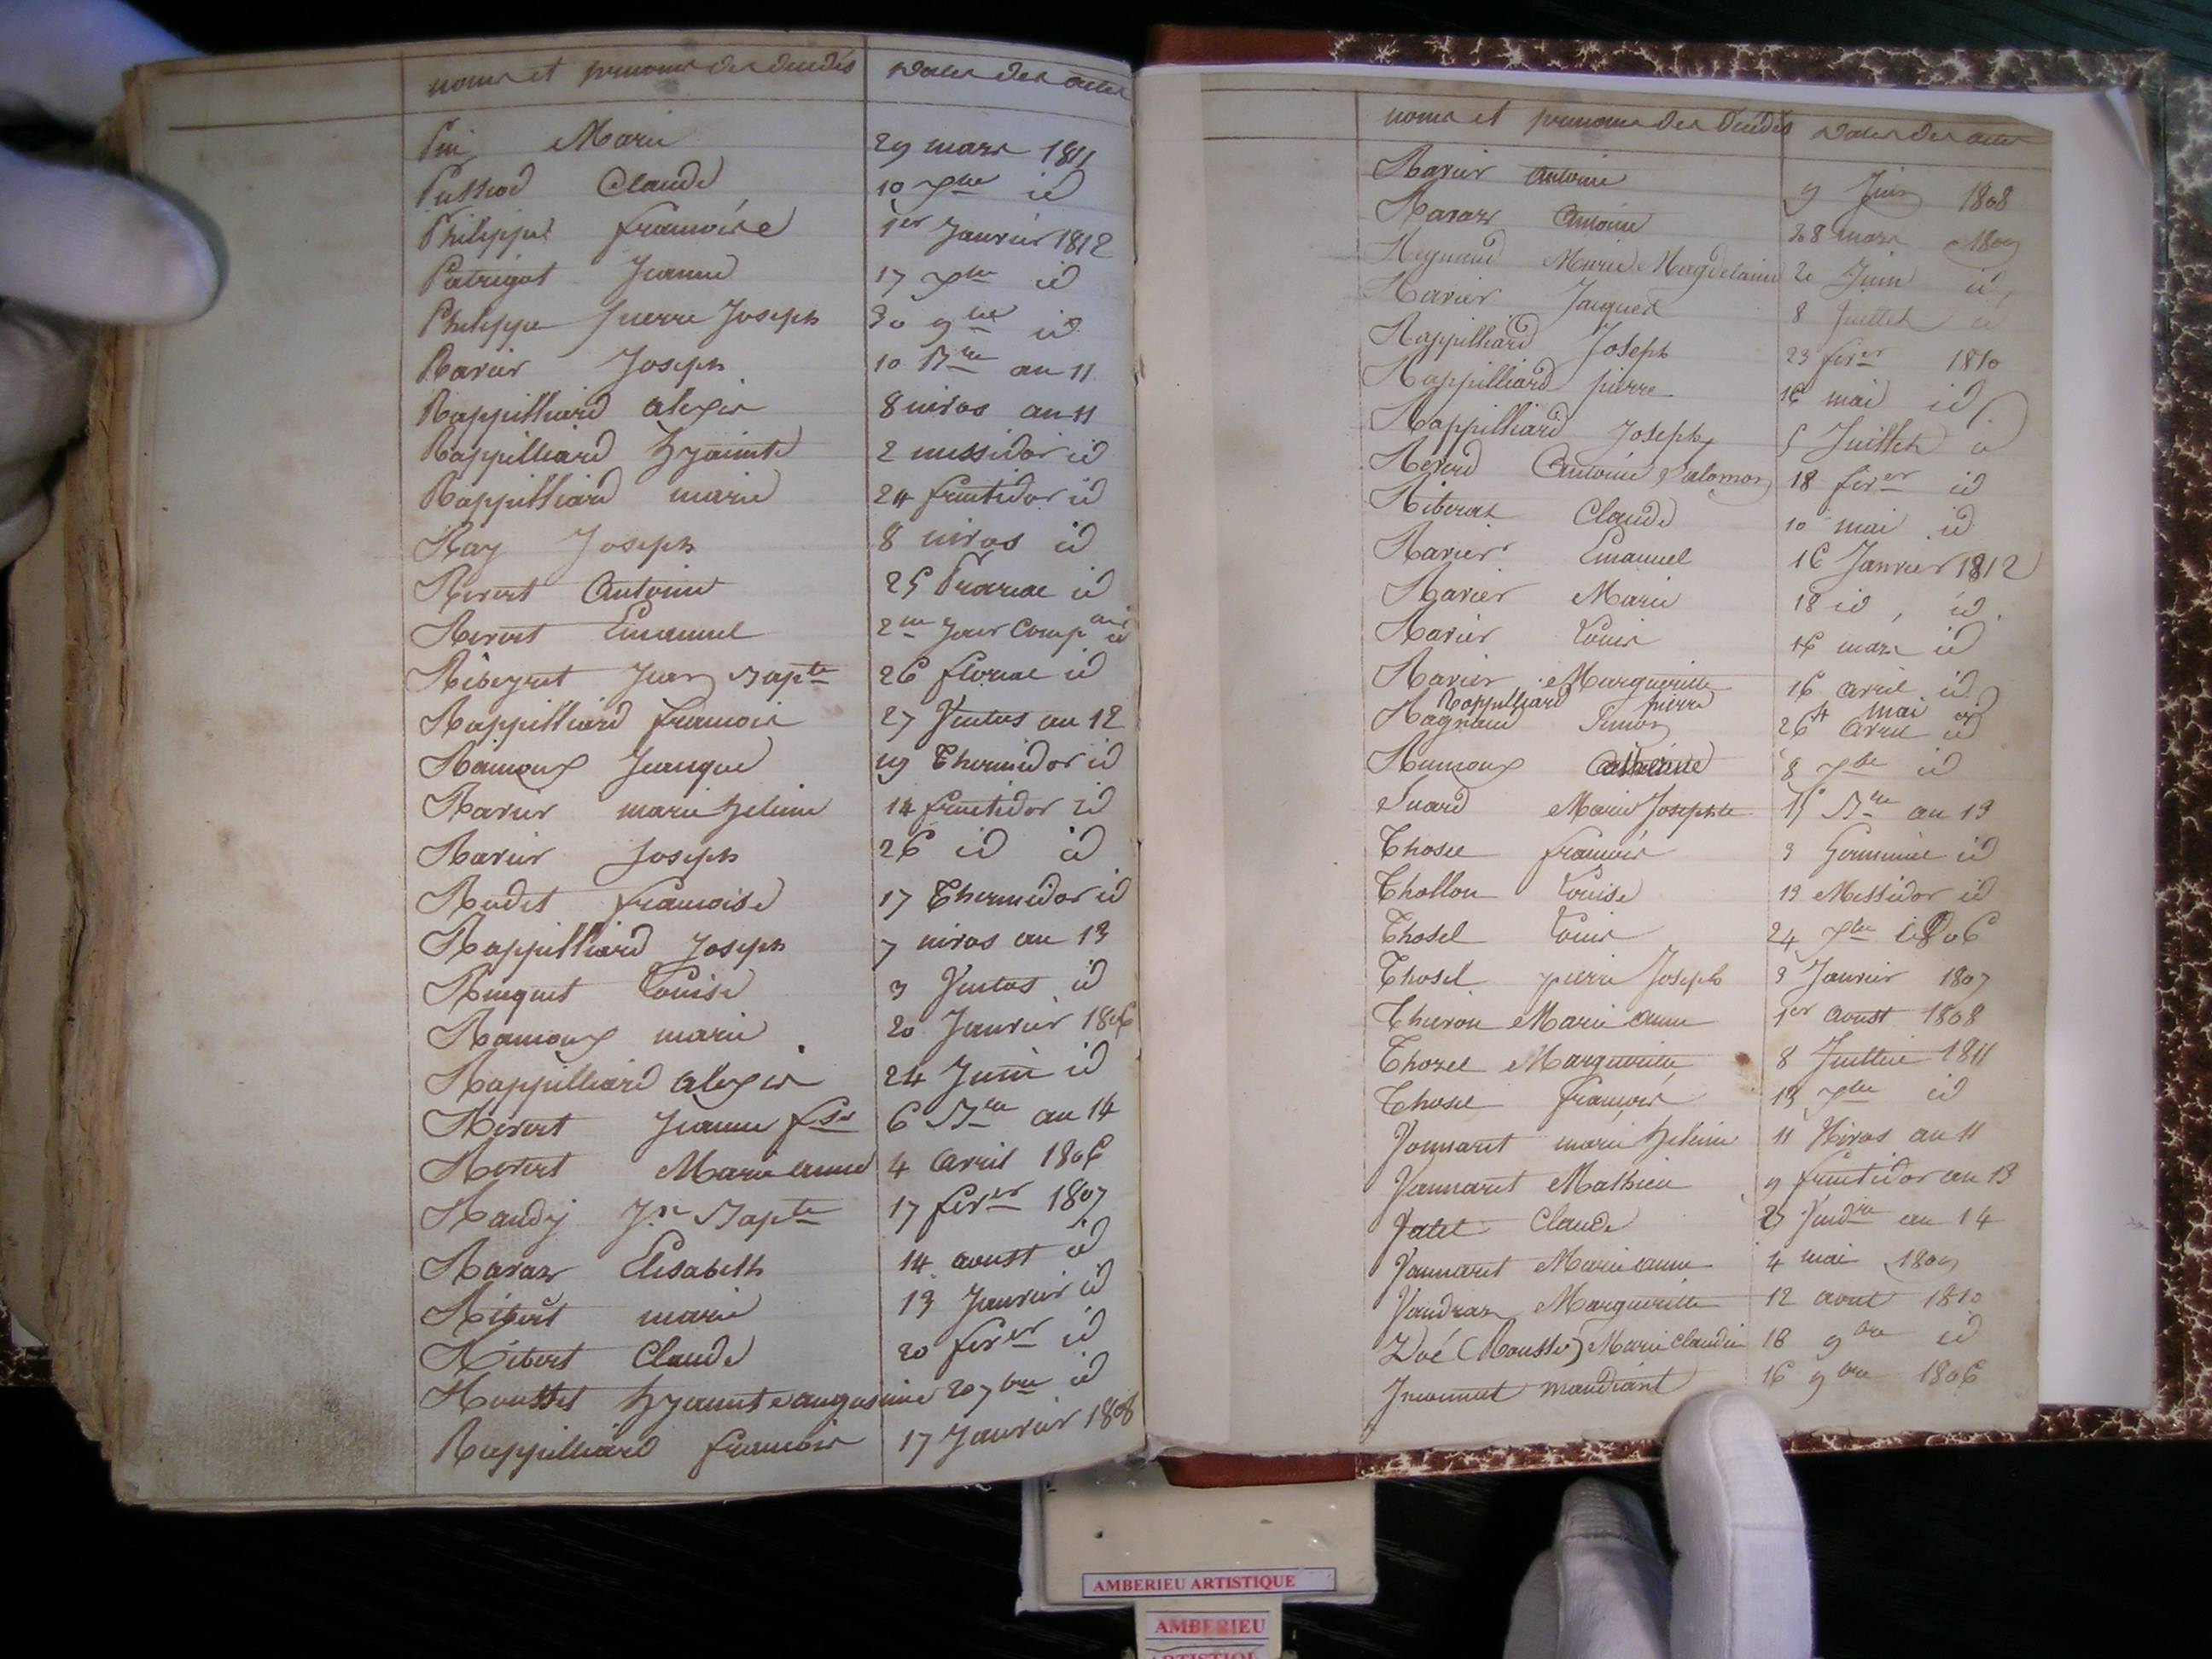 noms et prenoms des decédés dates des actes
Pin Marie 29 mars 1811
Pussiod Claude 10 7bre id
Philippe francoise 1er Janvier 1812
Patrigot Jeanne 17 7bre id
Philippe pierre Joseph 30 9bre id
Ravier Joseph 10 Bre an 11
Rappilliard alexis 8 nivos an 11
Rappilliard hyainte 2 messidor id
Rappilliard marie 24 fructidor id
Ray Joseph 8 nivos id
Revert Antoine 25 Prarial id
Revert Emanuel 2me Jour Comp.aire id
Ribeyret Jean Bapte 26 floreal id
Rappilliard francois 27 Ventos an 12
Ramoux Jeanque 19 Thermidor id
Ravier marie heleine 14 fructidor id
Ravier Joseph 26 id id
Rudet francoise 17 Thermidor id
Rappilliard Joseph 7 nivos an 13
Ruquet Louise 3 Ventos id
Ramoux marie 20 Janvier 1806
Rappilliard alexis 24 Juin id
Revert Jeanne fse 6 Bre an 14
Revert Marie anne 4 avril 1806
Raudy Jn Bapte 17 fever 1807
Ravaz Elisabeth 14 aoust id
Ribert marie 13 Janvier id
Ribert Claude 20 fever id
Rousset hyainte augustine 20 7bre id
Rappilliard francois 17 Janvier 1808
noms et prenoms des decédés dates des actes
Ravier antoine 9 Juin 1808
Ravaz Antoine 28 mars 1809
Regnaud Marie Magdelaine 2 Juin id
Ravier Jacques 8 Juillet id
Rappilliard Joseph 23 fever 1810
Rappilliard pierre 16 mai id
Rappilliard Joseph 5 Juillet id
Reverd Antoine Salomon 18 fever id
Riberat Claude 10 mai id
Ravier Emanuel 16 Janvier 1812
Ravier Marie 18 id, id.
Ravier Louis 16 mars id
Ravier Marguerille 16 avril id
Rappilliard pierre 4 mai id
Ragnaud Simon 26 avril id
Rumoux Catherine 8 7bre id
Suard Marie Josephte 15 Bre an 13
Thosel francois 3 Germinal id
Thollon Louise 13 Messidor id
Thosel Louis 24 7bre 1806
Thosel pierre Joseph 3 Janvier 1807
Thevon Marie anne 1er aoust 1808
Thozel Marguerille 8 Juillet 1811
Thosel francois 13 7bre id
Vonnaret marie heleine 11 Nivos an 11
Vannaret Mathieu 9 fructidor an 13
Valet Claude 27 Vendre an 14
Vannaret Marie anne 4 mai 1809
Vaudran Marguerille 12 aout 1810
Zoé (Rousset) Marie claudine 18 9bre id
Inconnut mandiant 16 9bre 1806
AMBERIEU ARTISTIQUE
AMBERIEU
ARTISTIQUE